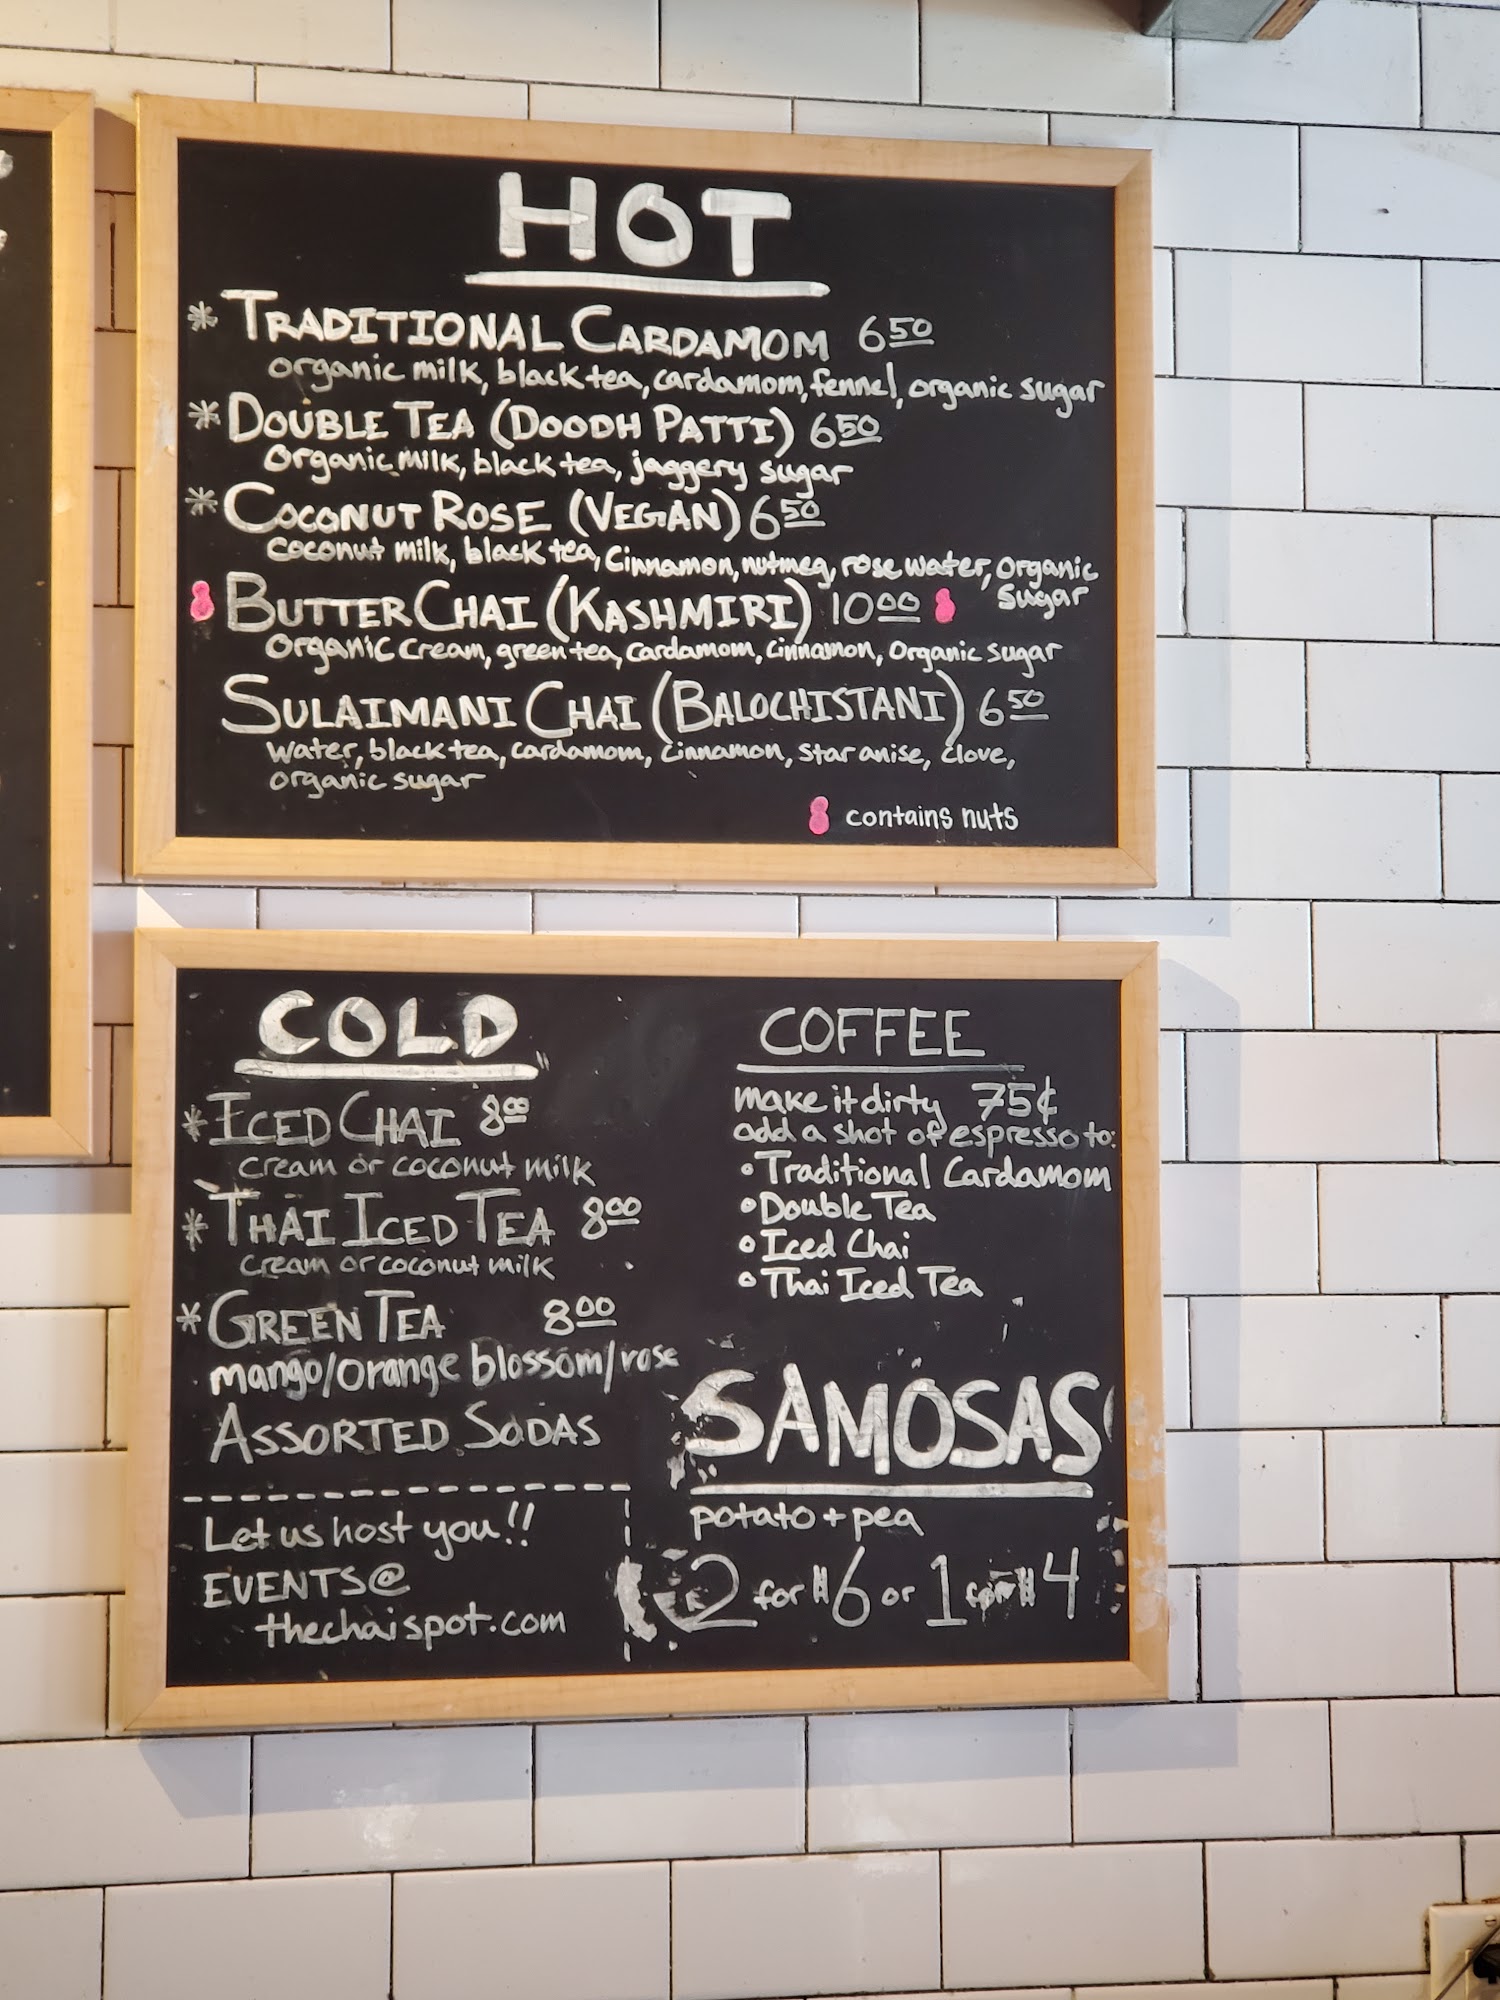 HOT
* TRADITIONAL CARDAMOM 6 50
organic milk, black tea, cardamom, fennel, organic sugar
* DOUBLE TEA (DOODH PATTI) 6 50
Organic milk, black tea, jaggery sugar
* COCONUT ROSE (VEGAN) 6 50
coconut milk, black tea, Cinnamon, nutmeg, rose water, organic
sugar
BUTTER CHAI (KASHMIRI) 10 00
Organic cream, green tea, cardamom, cinnamon, Organic sugar
SULAIMANI CHAI (BALOCHISTANI) 6 50
water, black tea, cardamom, cinnamon, star anise, clove,
organic sugar
contains nuts
COLD
* ICED CHAI 8 00
cream or coconut milk
* THAI ICED TEA 8 00
cream or coconut milk
* GREEN TEA 8 00
mango/orange blossom/rose
ASSORTED SODAS
Let us host you!!
EVENTS@
thechaispot.com
COFFEE
make it dirty 75¢
add a shot of espresso to:
• Traditional Cardamom
• Double Tea
• Iced Chai
• Thai Iced Tea
SAMOSAS
potato + pea
2 for $6 or 1 for $4